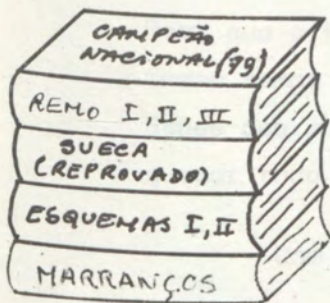 CAMPEÃO
NACIONAL (79)
REMO I, II, III
SUECA
(REPROVADO)
ESQUEMAS I, II
MARRANÇOS